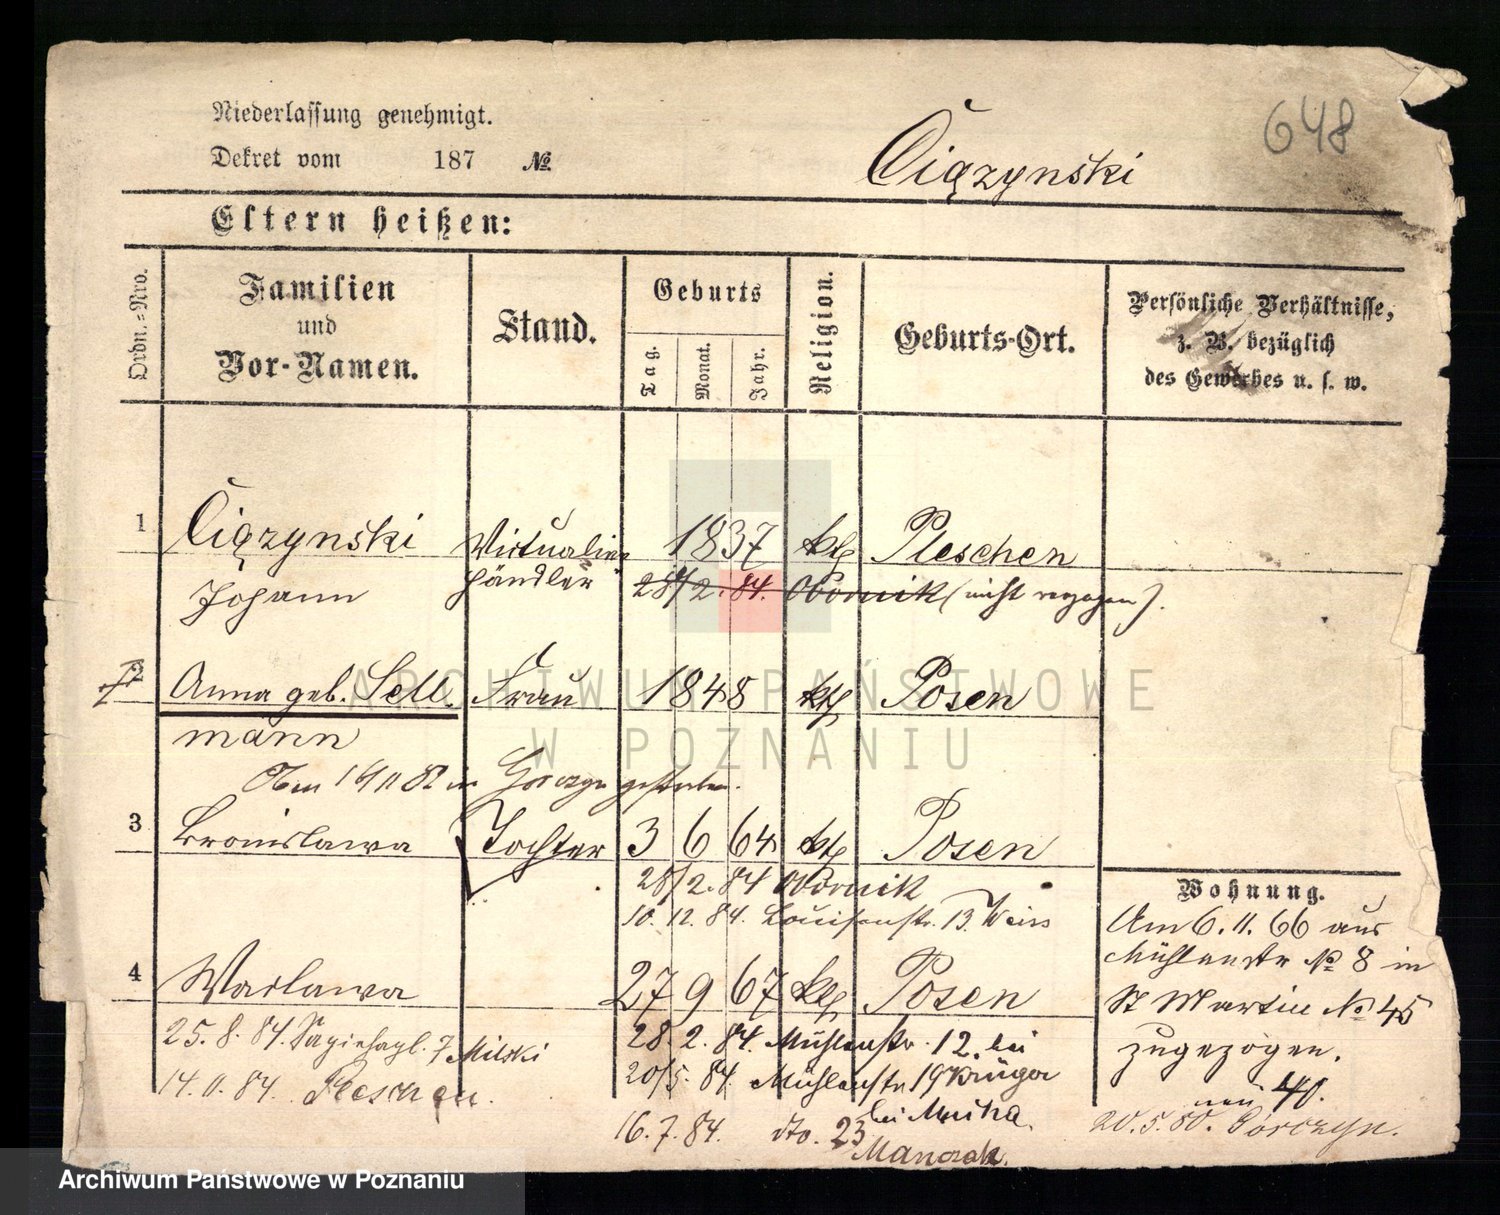 648
Niederlassung genehmigt.
Dekret vom 187 №
Ciązynski
Eltern heißen:
Ordn.=Nro.
Familien
und
Vor-Namen.
Stand.
Geburts
Tag.
Monat.
Jahr.
Religion.
Geburts-Ort.
Persönliche Verhältnisse,
z. B. bezüglich
des Gewerbes u. s. w.
1 Ciązynski Victualien 1837 kth Pleschen
Johann händler 28/2. 84. Obornik (nicht verzogen).
2 Anna geb. Sell Frau 1848 kth Posen
mann
3 Bronislawa Tochter 3 6 64 kth Posen
28/2. 84 Obornik
10. 12. 84. Louisenstr. 13. Weiss
4 Waclawa 27 9 67 kth Posen
25. 8. 84. 7 Milski
28. 2. 84. Mühlenstr. 12. bei
84. Pleschen.
20/5. 84. Mühlenstr 19 Krüger
bei
16. 7. 84. dto. 23
Wohnung.
Am 6. 11. 66 aus
Mühlenstr № 8 in
St Martin № 45
zugezogen.
neu 40.
20. 5. 80. Górczyn.
ARCHIWUM PAŃSTWOWE
W POZNANIU
Archiwum Państwowe w Poznaniu